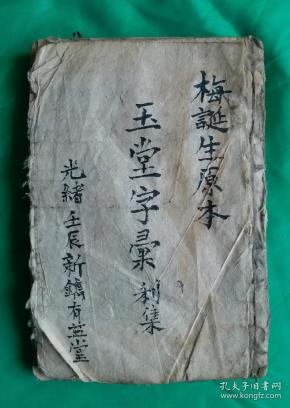 梅誕生原本
玉堂字彙 利集
光緒壬辰新鐫有益堂
孔夫子旧书网